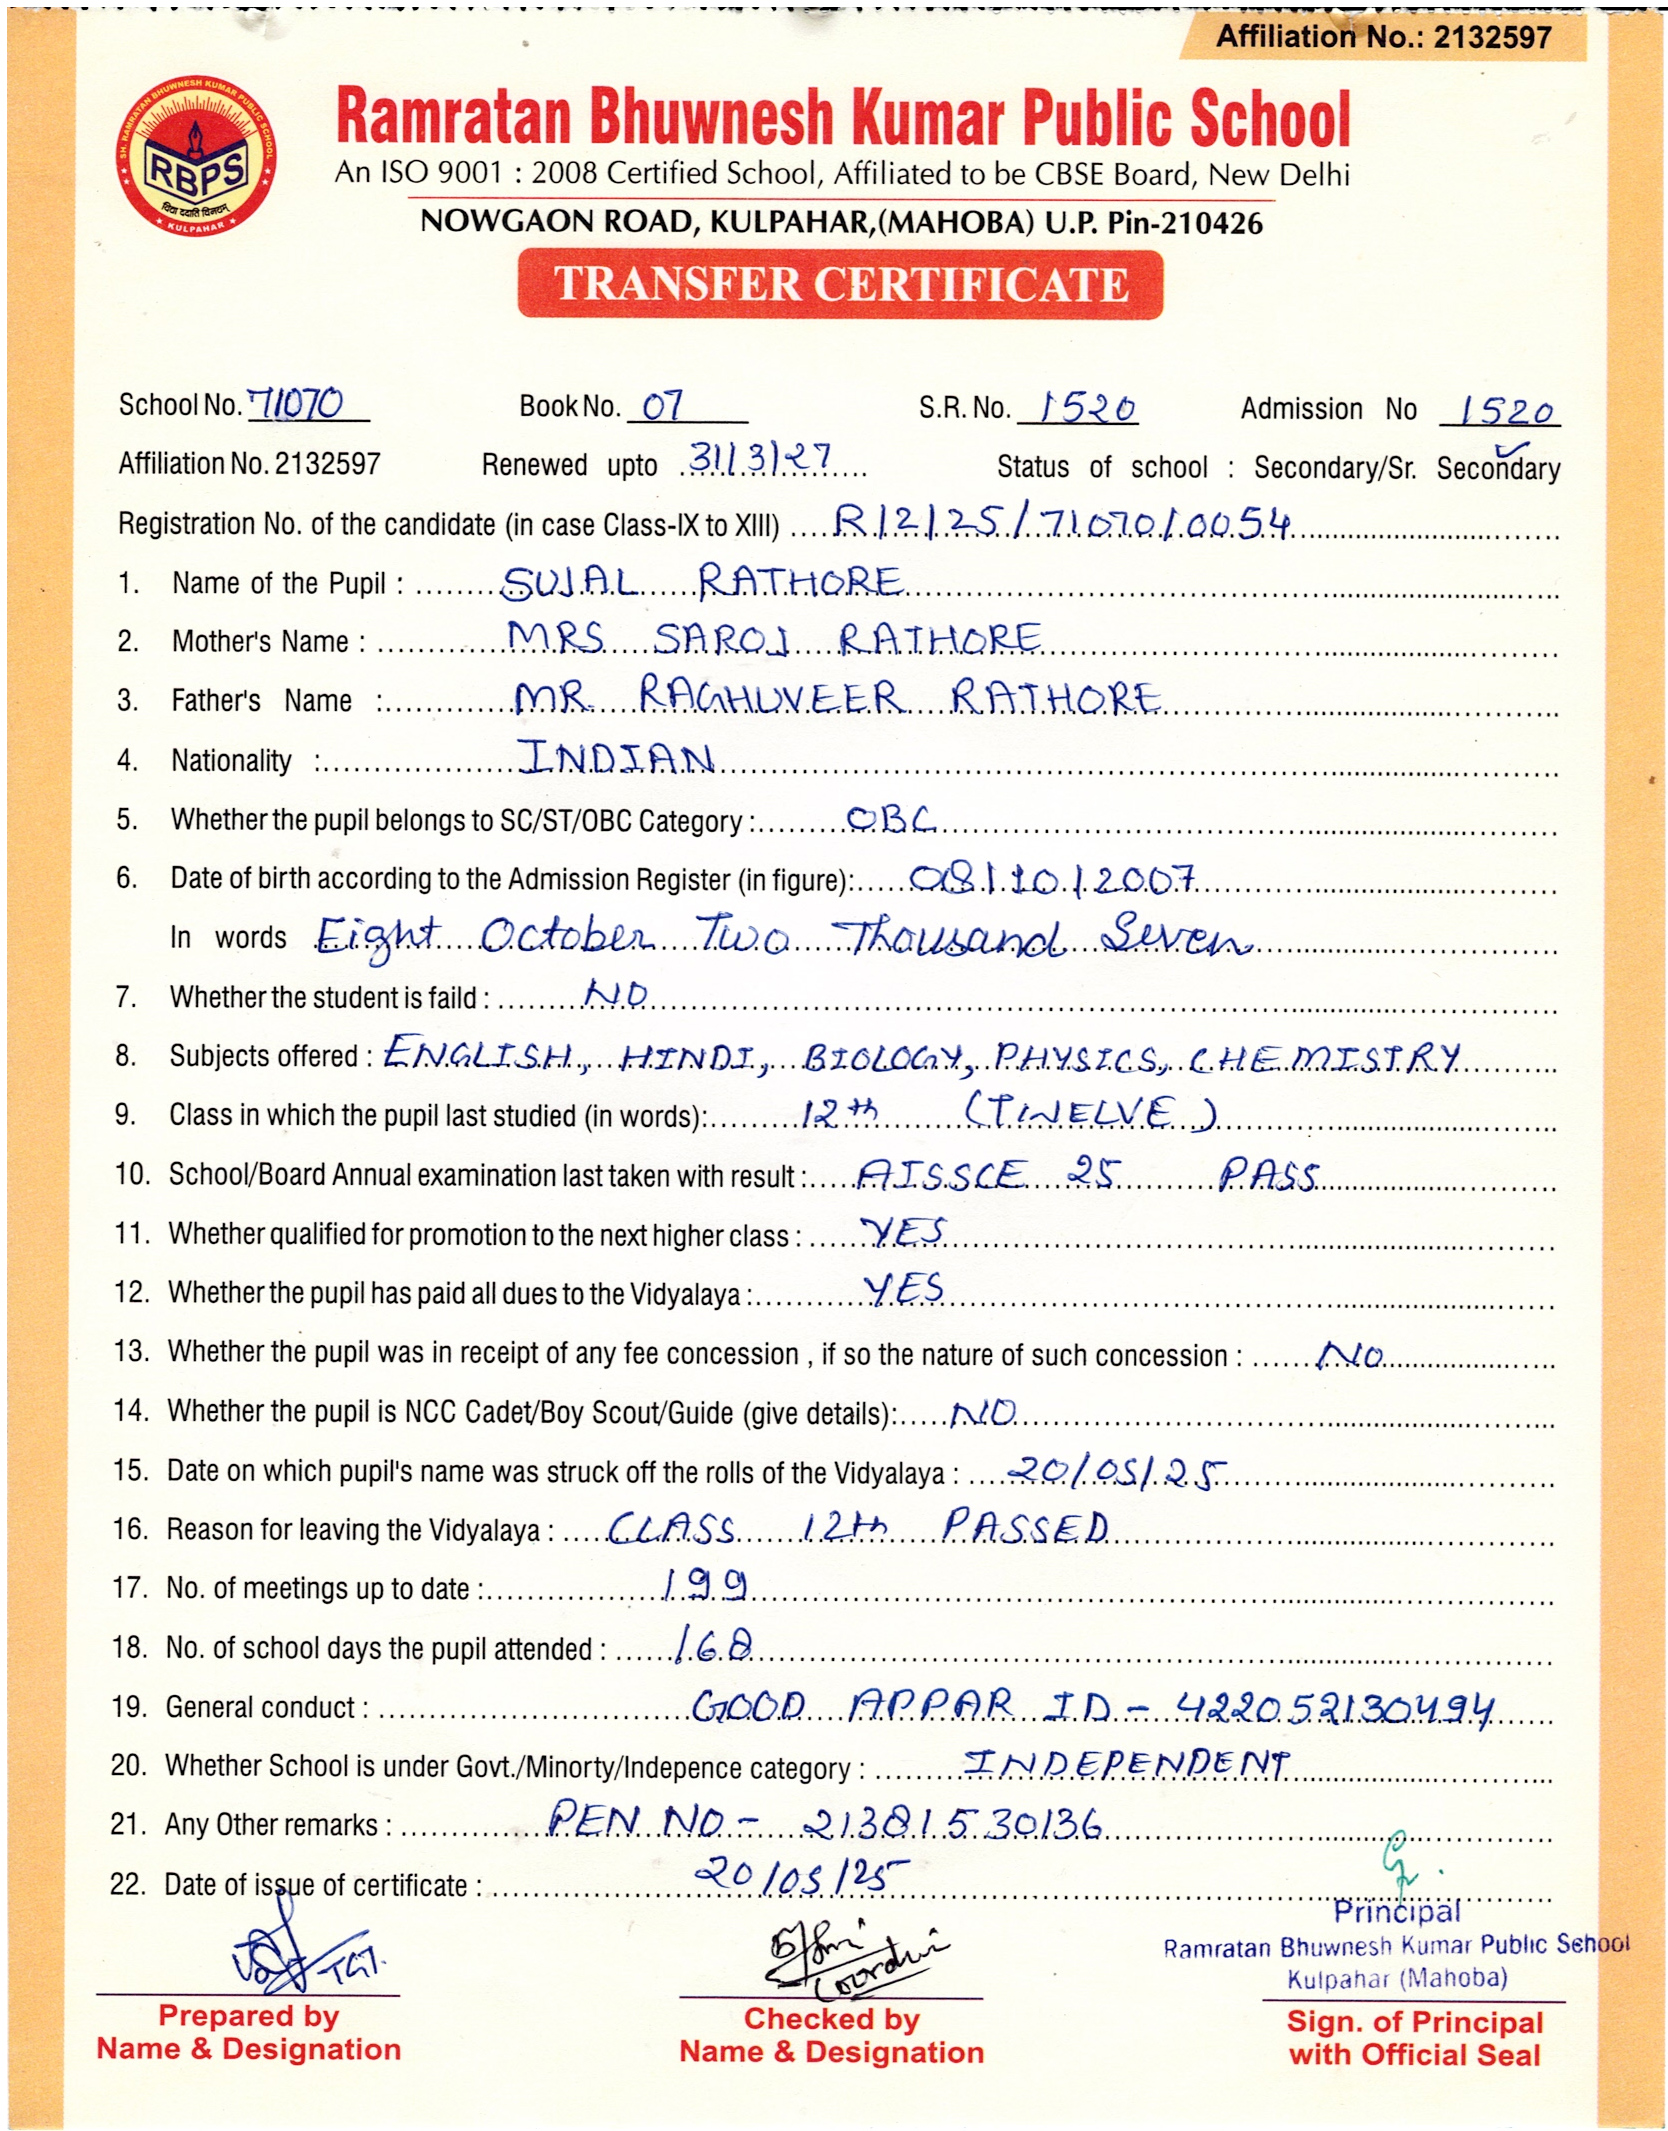 Affiliation No.: 2132597
SH. RAMRATAN BHUWNESH KUMAR PUBLIC SCHOOL
RBPS
विद्या ददाति विनयम्
KULPAHAR
Ramratan Bhuwnesh Kumar Public School
An ISO 9001 : 2008 Certified School, Affiliated to be CBSE Board, New Delhi
NOWGAON ROAD, KULPAHAR,(MAHOBA) U.P. Pin-210426
TRANSFER CERTIFICATE
School No. 71070 Book No. 07 S.R. No. 1520 Admission No 1520
Affiliation No. 2132597 Renewed upto 31/3/27 Status of school : Secondary/Sr. Secondary
Registration No. of the candidate (in case Class-IX to XIII) R/2/25/71070/0054
1. Name of the Pupil : SUJAL RATHORE
2. Mother's Name : MRS SAROJ RATHORE
3. Father's Name : MR. RAGHUVEER RATHORE
4. Nationality : INDIAN
5. Whether the pupil belongs to SC/ST/OBC Category : OBC
6. Date of birth according to the Admission Register (in figure): 08/10/2007
In words Eight October Two Thousand Seven
7. Whether the student is faild : NO
8. Subjects offered : ENGLISH, HINDI, BIOLOGY, PHYSICS, CHEMISTRY
9. Class in which the pupil last studied (in words): 12th (TWELVE)
10. School/Board Annual examination last taken with result : AISSCE 25 PASS
11. Whether qualified for promotion to the next higher class : YES
12. Whether the pupil has paid all dues to the Vidyalaya : YES
13. Whether the pupil was in receipt of any fee concession , if so the nature of such concession : NO
14. Whether the pupil is NCC Cadet/Boy Scout/Guide (give details): NO
15. Date on which pupil's name was struck off the rolls of the Vidyalaya : 20/05/25
16. Reason for leaving the Vidyalaya : CLASS 12th PASSED
17. No. of meetings up to date : 199
18. No. of school days the pupil attended : 168
19. General conduct : GOOD APPAR ID - 422052130494
20. Whether School is under Govt./Minorty/Indepence category : INDEPENDENT
21. Any Other remarks : PEN NO - 21381530136
22. Date of issue of certificate : 20/05/25
Principal
Ramratan Bhuwnesh Kumar Public School
Kulpahar (Mahoba)
TGT.
Prepared by
Name & Designation
Checked by
Name & Designation
Sign. of Principal
with Official Seal